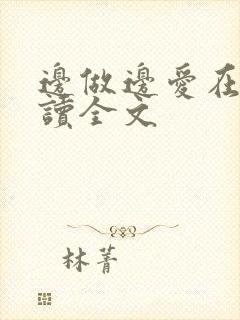 邊做邊愛在
讀全文
林菁